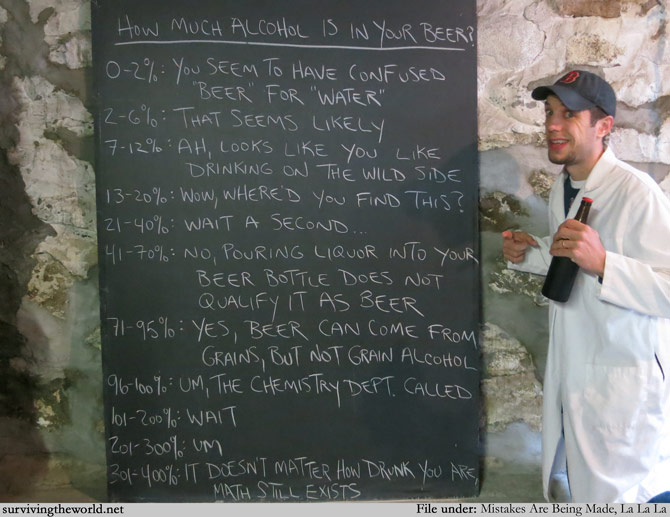 HOW MUCH ALCOHOL IS IN YOUR BEER?
0-2%: YOU SEEM TO HAVE CONFUSED
"BEER" FOR "WATER"
2-6%: THAT SEEMS LIKELY
7-12%: AH, LOOKS LIKE YOU LIKE
DRINKING ON THE WILD SIDE
13-20%: WOW, WHERE'D YOU FIND THIS?
21-40%: WAIT A SECOND...
41-70%: NO, POURING LIQUOR INTO YOUR
BEER BOTTLE DOES NOT
QUALIFY IT AS BEER
71-95%: YES, BEER CAN COME FROM
GRAINS, BUT NOT GRAIN ALCOHOL
96-100%: UM, THE CHEMISTRY DEPT. CALLED
101-200%: WAIT
201-300%: UM
301-400%: IT DOESN'T MATTER HOW DRUNK YOU ARE,
MATH STILL EXISTS
B
survivingtheworld.net
File under: Mistakes Are Being Made, La La La